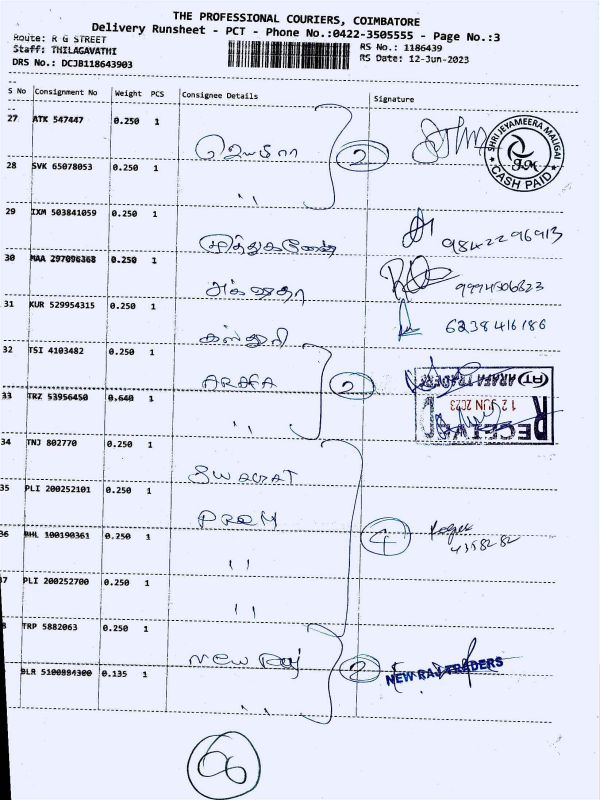 THE PROFESSIONAL COURIERS, COIMBATORE
Delivery Runsheet - PCT - Phone No.:0422-3505555 - Page No.:3
Route: R G STREET
RS No.: 1186439
Staff: THILAGAVATHI
RS Date: 12-Jun-2023
DRS No.: DCJB118643903
S No Consignment No Weight PCS Consignee Details Signature
27 ATK 547447 0.250 1
SHRI JEYAMEERA MALIGAI
J.M
CASH PAID
2
28 SVK 65078053 0.250 1
"
29 IXM 503841059 0.250 1
98422 96913
30 MAA 297096368 0.250 1
31 KUR 529954315 0.250 1
6238416186
கஸ்தூரி
32 TSI 4103482 0.250 1
ARAFA 2
ARAFA TRADERS
33 TRZ 53956450 0.640 1
12 JUN 2023
RECEIVED
"
34 TNJ 802770 0.250 1
SWAGAT
35 PLI 200252101 0.250 1
PREM 4
36 BHL 100190361 0.250 1
4358282
"
37 PLI 200252700 0.250 1
"
8 TRP 5882063 0.250 1
New Raj 2
NEW RAJ TRADERS
BLR 5100884300 0.135 1